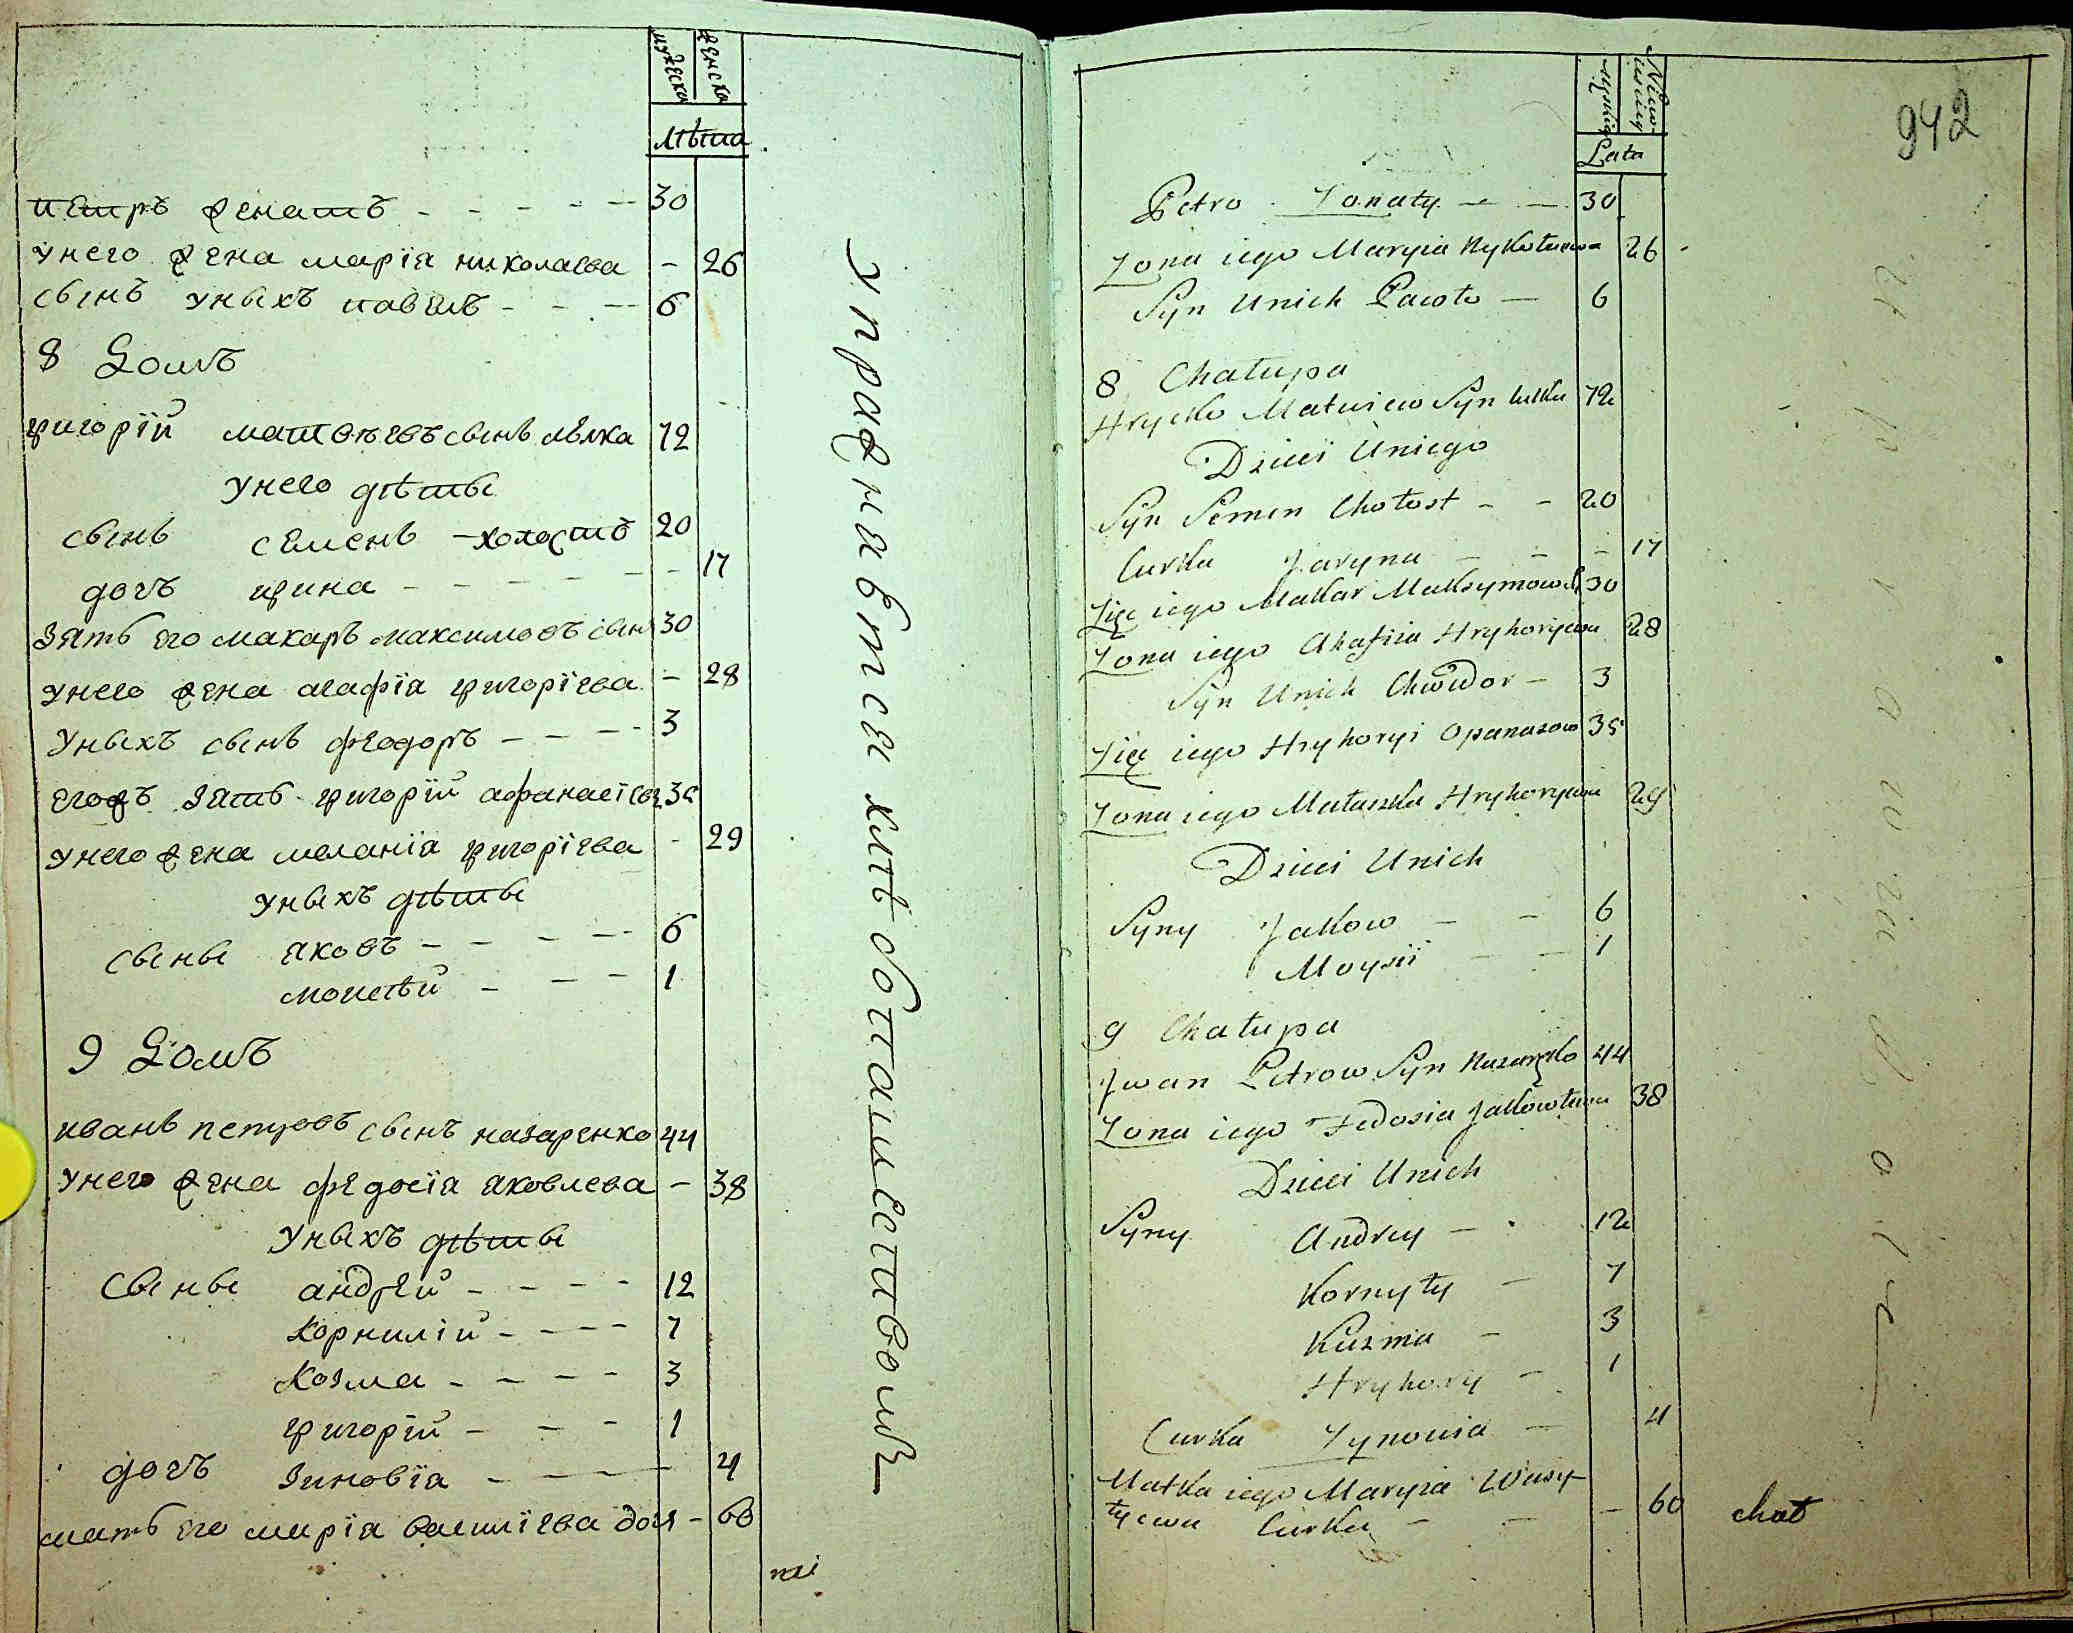 мужеска
женска
лѣта
петръ женатъ - - - - - 30
унего жена марїа николаева - 26
сынъ уныхъ павелъ - - - 6
8 Домъ
григорїй матвѣевъ сынъ лылка 72
унего дѣты
сынъ семенъ - холостъ 20
дочъ ирина - - - - - - 17
Зять его макаръ максимовъ сынъ 30
унего жена агафїа григорїева - 28
Уныхъ сынъ феодоръ - - - - 3
егожъ зять григорїй афанасїевъ 35
унего жена меланїа григорїева - 29
уныхъ дѣты
сыны яковъ - - - - - 6
моисѣй - - - 1
9 Домъ
иванъ петровъ сынъ назаренко 44
унего жена федосїа яковлева - 38
Уныхъ дѣты
Сыны андрей - - - - 12
Корнилїй - - - - 7
Козма - - - - 3
григорїй - - - 1
дочъ Зиновїа - - - - - 4
мать его марїа василїева доч - 60
Управ
942
męska
Lata
Petro Żonaty - - 30
Żona iego Maryia Nykołaiewa 26
Syn Unich Pawło - 6
8 Chałupa
Hrycko Matwiew Syn Lulka 72
Dzieci Uniego
Syn Semen Chołost - - 20
Curka Jaryna - - - 17
Zięć iego Makar Maksymow 30
Żona iego Ahafiia Hryhoryewa 28
Syn Unich Chwedor - 3
Zięć iego Hryhoryi Opanasow 35
Żona iego Małaszka Hryhoryewa 29
Dzieci Unich
Syny Jakow - - 6
Moysii - - 1
9 Chałupa
Jwan Petrow Syn Nazarenko 44
Żona iego Fedosia Jakowłewa 38
Dzieci Unich
Syny Andrey - 12
Kornyły - 7
Kuzma - 3
Hryhory - 1
Curka Zynowia - 4
Matka iego Maryia Wasy-
łyewa Curka - - - 60
chat